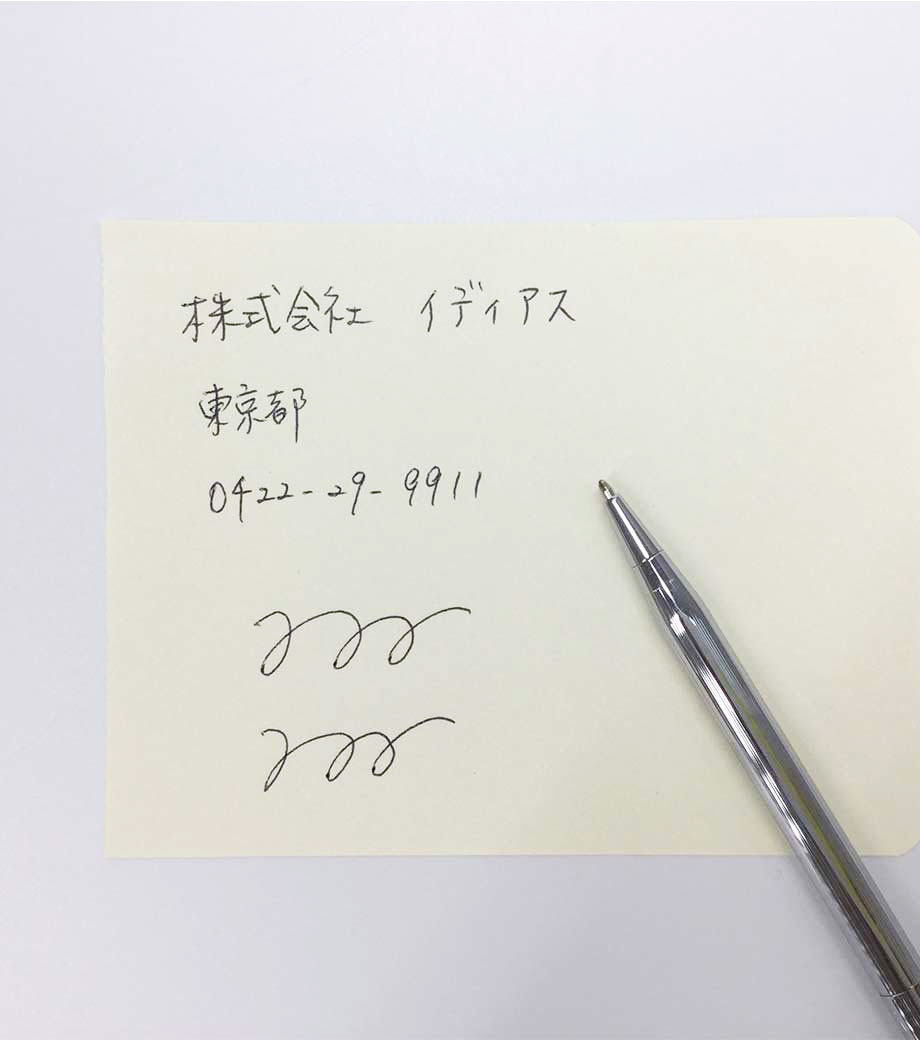 株式会社　イディアス
東京都
0422-29-9911